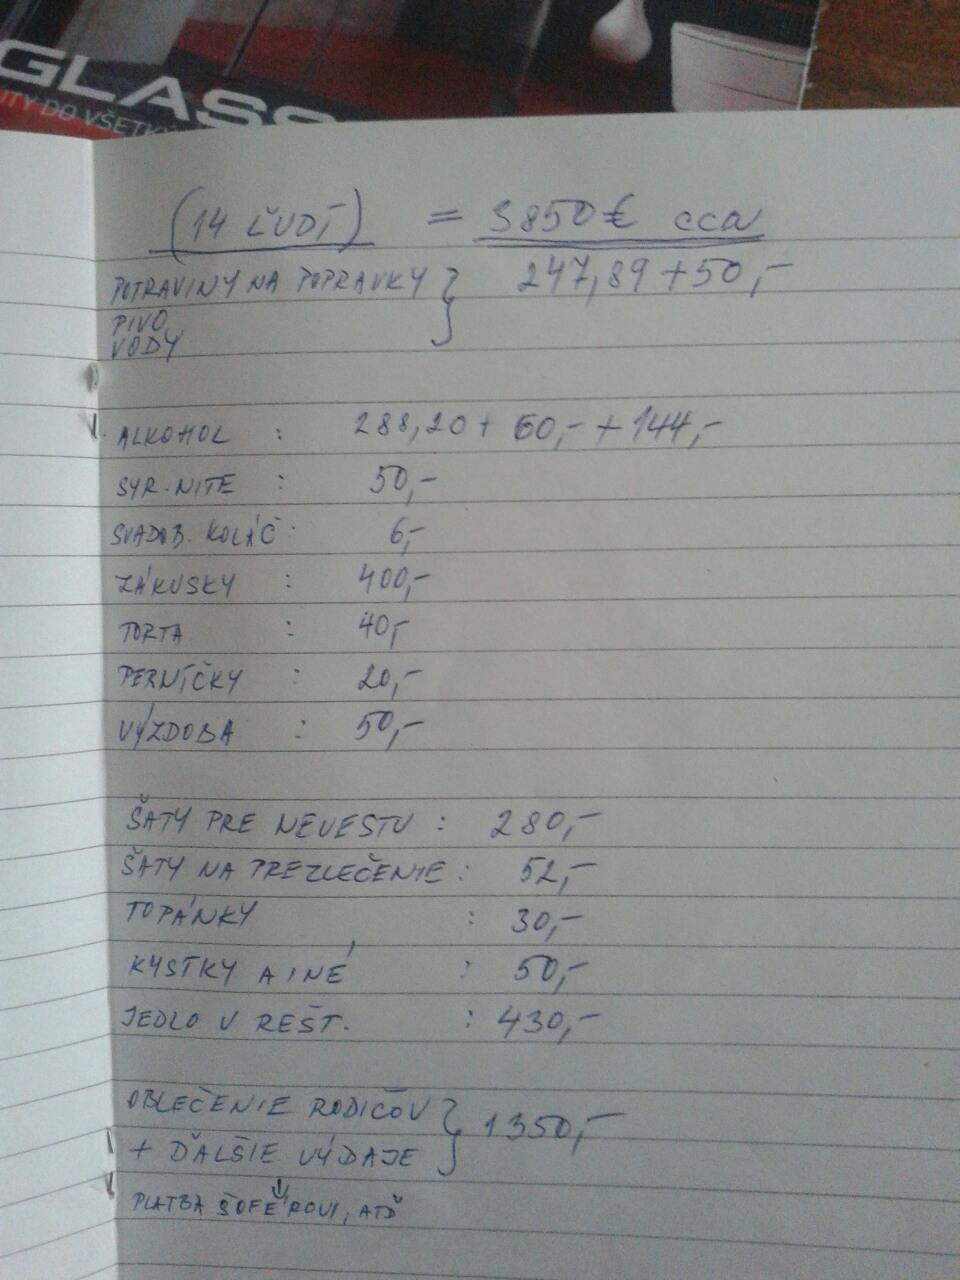 GLASS
(14 ĽUDÍ) = 3850€ cca
POTRAVINY NA POPRAVKY } 247,89 + 50,-
PIVO
VODY
ALKOHOL : 288,20 + 60,- + 144,-
SYR. NITE : 50,-
SVADOB. KOLÁČ : 6,-
ZÁKUSKY : 400,-
TORTA : 40,-
PERNÍČKY : 20,-
VÝZDOBA : 50,-
ŠATY PRE NEVESTU : 280,-
ŠATY NA PREZLEČENIE : 52,-
TOPÁNKY : 30,-
KYSTKY A INÉ : 50,-
JEDLO V REŠT. : 430,-
OBLEČENIE RODIČOV } 1350,-
+ ĎALŠIE VÝDAJE
PLATBA ŠOFÉROVI, ATĎ